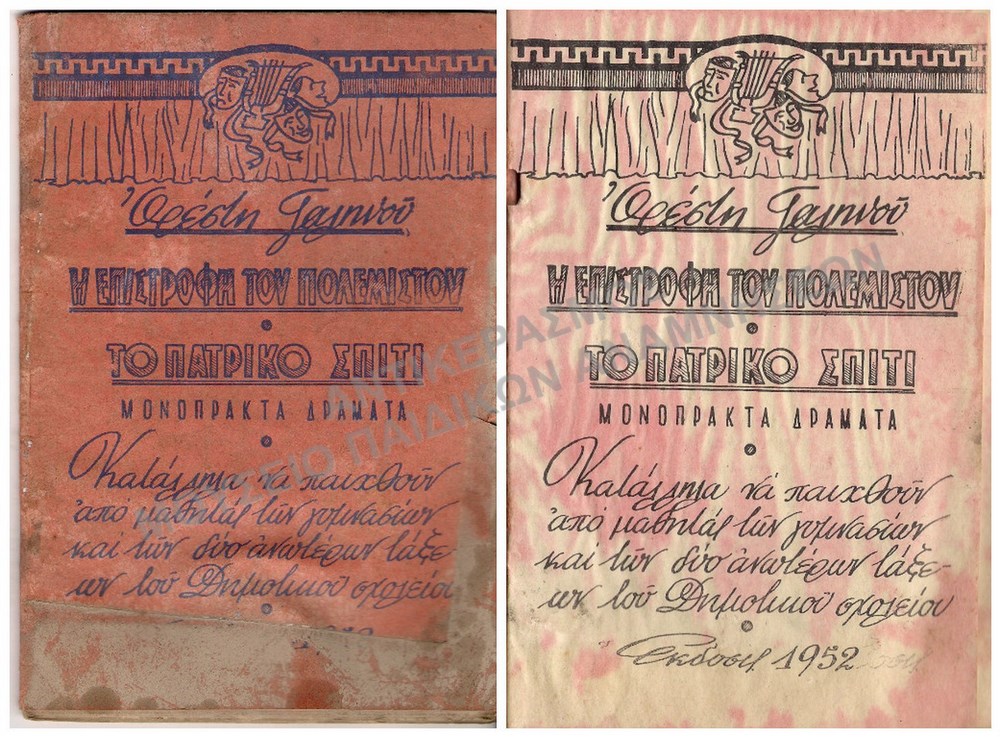 Ὀρέστη Γαληνοῦ
Η ΕΠΙΣΤΡΟΦΗ ΤΟΥ ΠΟΛΕΜΙΣΤΟΥ
ΤΟ ΠΑΤΡΙΚΟ ΣΠΙΤΙ
ΜΟΝΟΠΡΑΚΤΑ ΔΡΑΜΑΤΑ
Κατάλληλα νά παιχθοῦν
ἀπό μαθητάς τῶν γυμνασίων
καί τῶν δύο ἀνωτέρων τάξε-
ων τοῦ Δημοτικοῦ σχολείου
Ὀρέστη Γαληνοῦ
Η ΕΠΙΣΤΡΟΦΗ ΤΟΥ ΠΟΛΕΜΙΣΤΟΥ
ΤΟ ΠΑΤΡΙΚΟ ΣΠΙΤΙ
ΜΟΝΟΠΡΑΚΤΑ ΔΡΑΜΑΤΑ
Κατάλληλα νά παιχθοῦν
ἀπό μαθητάς τῶν γυμνασίων
καί τῶν δύο ἀνωτέρων τάξε-
ων τοῦ Δημοτικοῦ σχολείου
Ἔκδοσις 1952
ΠΑΙΔΙΚΩΝ ΑΝΑΜΝΗΣΕΩΝ